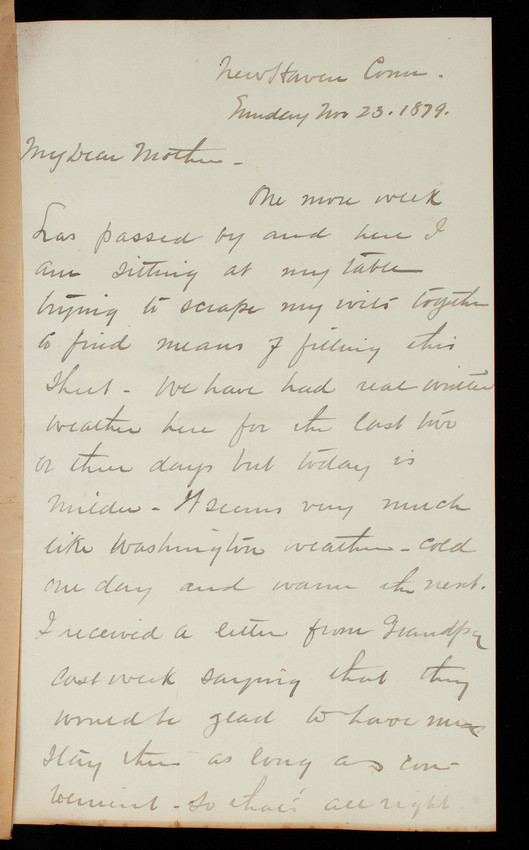 New Haven Conn.
Sunday Nov 23. 1879.
My Dear Mother -
One more week
has passed by and here I
am sitting at my table
trying to scrape my wits together
to find means of filling this
sheet - We have had real winter
weather here for the last two
or three days but today is
milder - It seems very much
like Washington weather - cold
one day and warm the next.
I received a letter from Grandpa
last week saying that they
would be glad to have me
stay there as long as con-
venient - So that's all right.